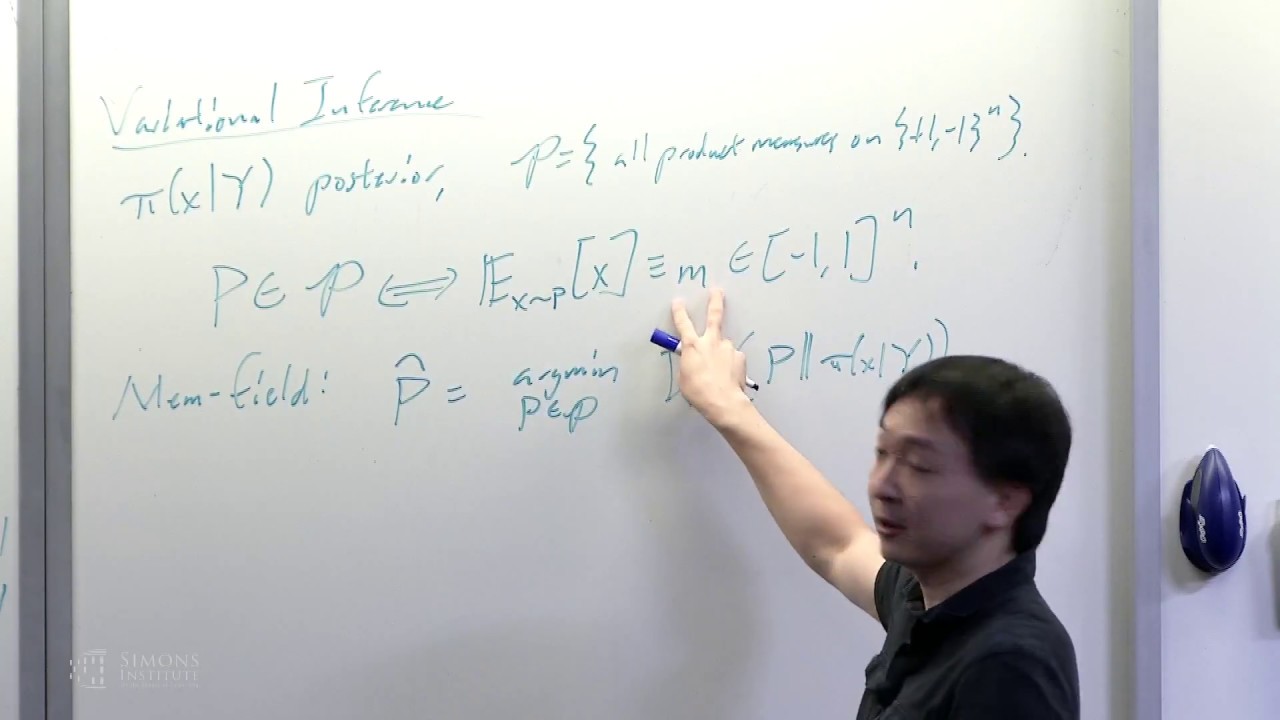 Variational Inference
π(x|Y) posterior, 𝒫 = { all product measures on {+1,-1}ⁿ }.
P ∈ 𝒫 ⟺ 𝔼ₓ∼ₚ[x] ≡ m ∈ [-1,1]ⁿ.
Mean-field: P̂ = argmin P∈𝒫 P || π(x|Y))
SIMONS
INSTITUTE